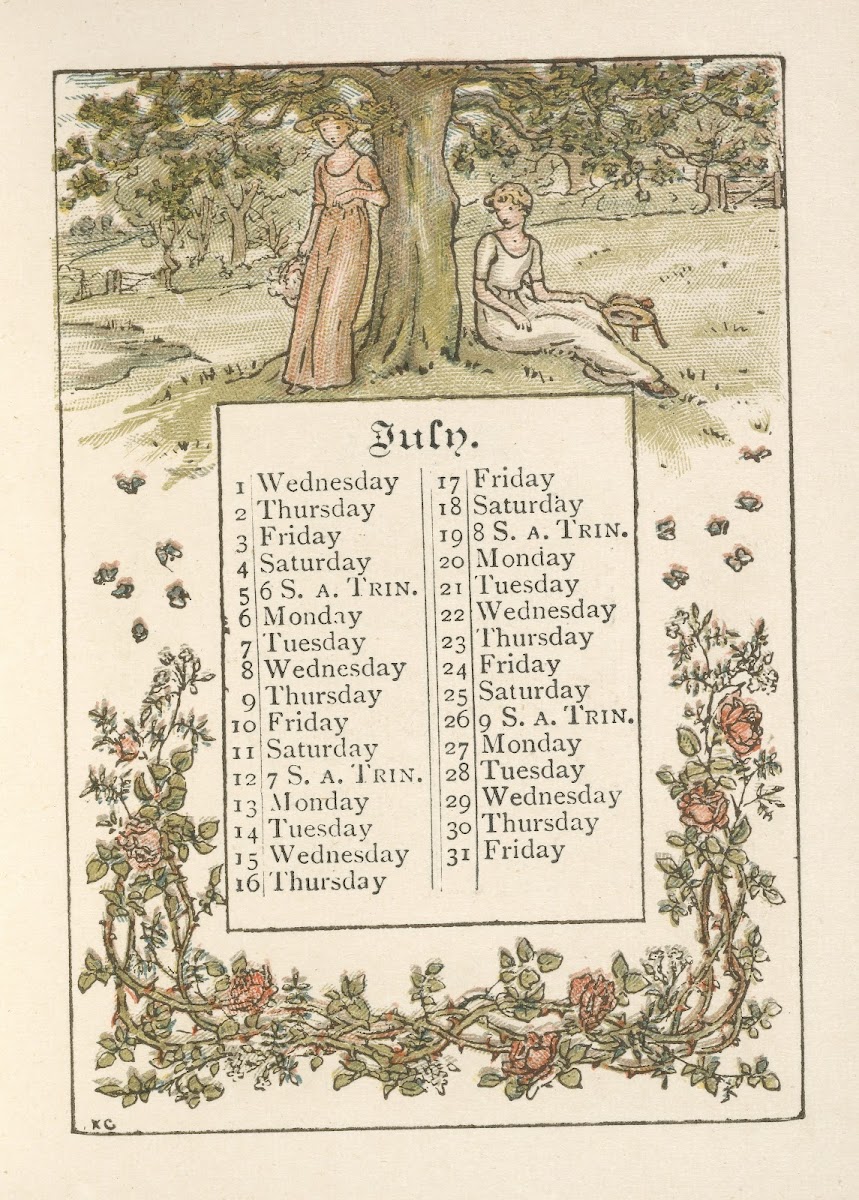 July.
1 Wednesday
2 Thursday
3 Friday
4 Saturday
5 6 S. A. TRIN.
6 Monday
7 Tuesday
8 Wednesday
9 Thursday
10 Friday
11 Saturday
12 7 S. A. TRIN.
13 Monday
14 Tuesday
15 Wednesday
16 Thursday
17 Friday
18 Saturday
19 8 S. A. TRIN.
20 Monday
21 Tuesday
22 Wednesday
23 Thursday
24 Friday
25 Saturday
26 9 S. A. TRIN.
27 Monday
28 Tuesday
29 Wednesday
30 Thursday
31 Friday
KG